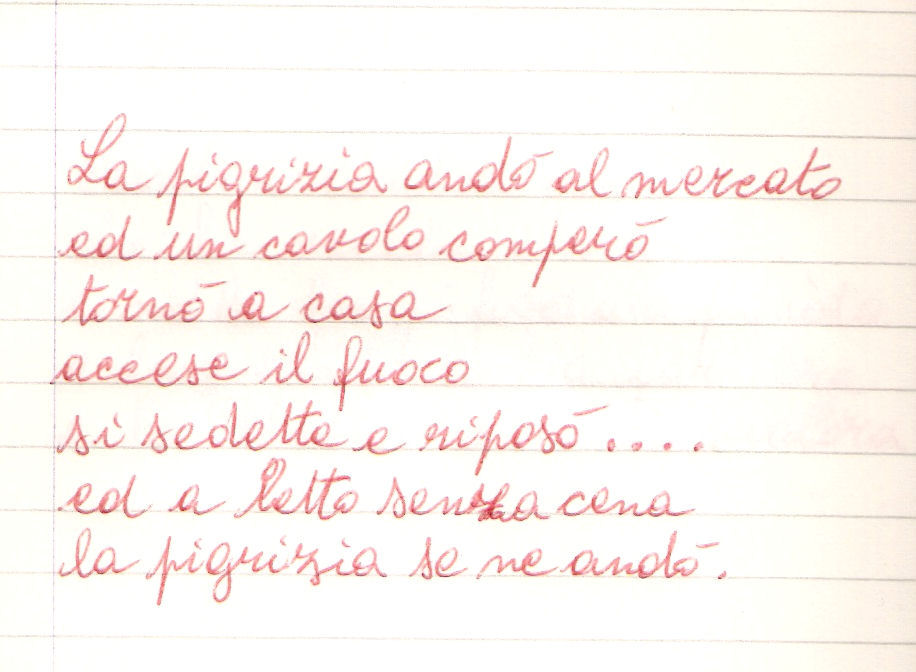 La pigrizia andò al mercato
ed un cavolo comperò
tornò a casa
accese il fuoco
si sedette e riposò....
ed a letto senza cena
la pigrizia se ne andò.